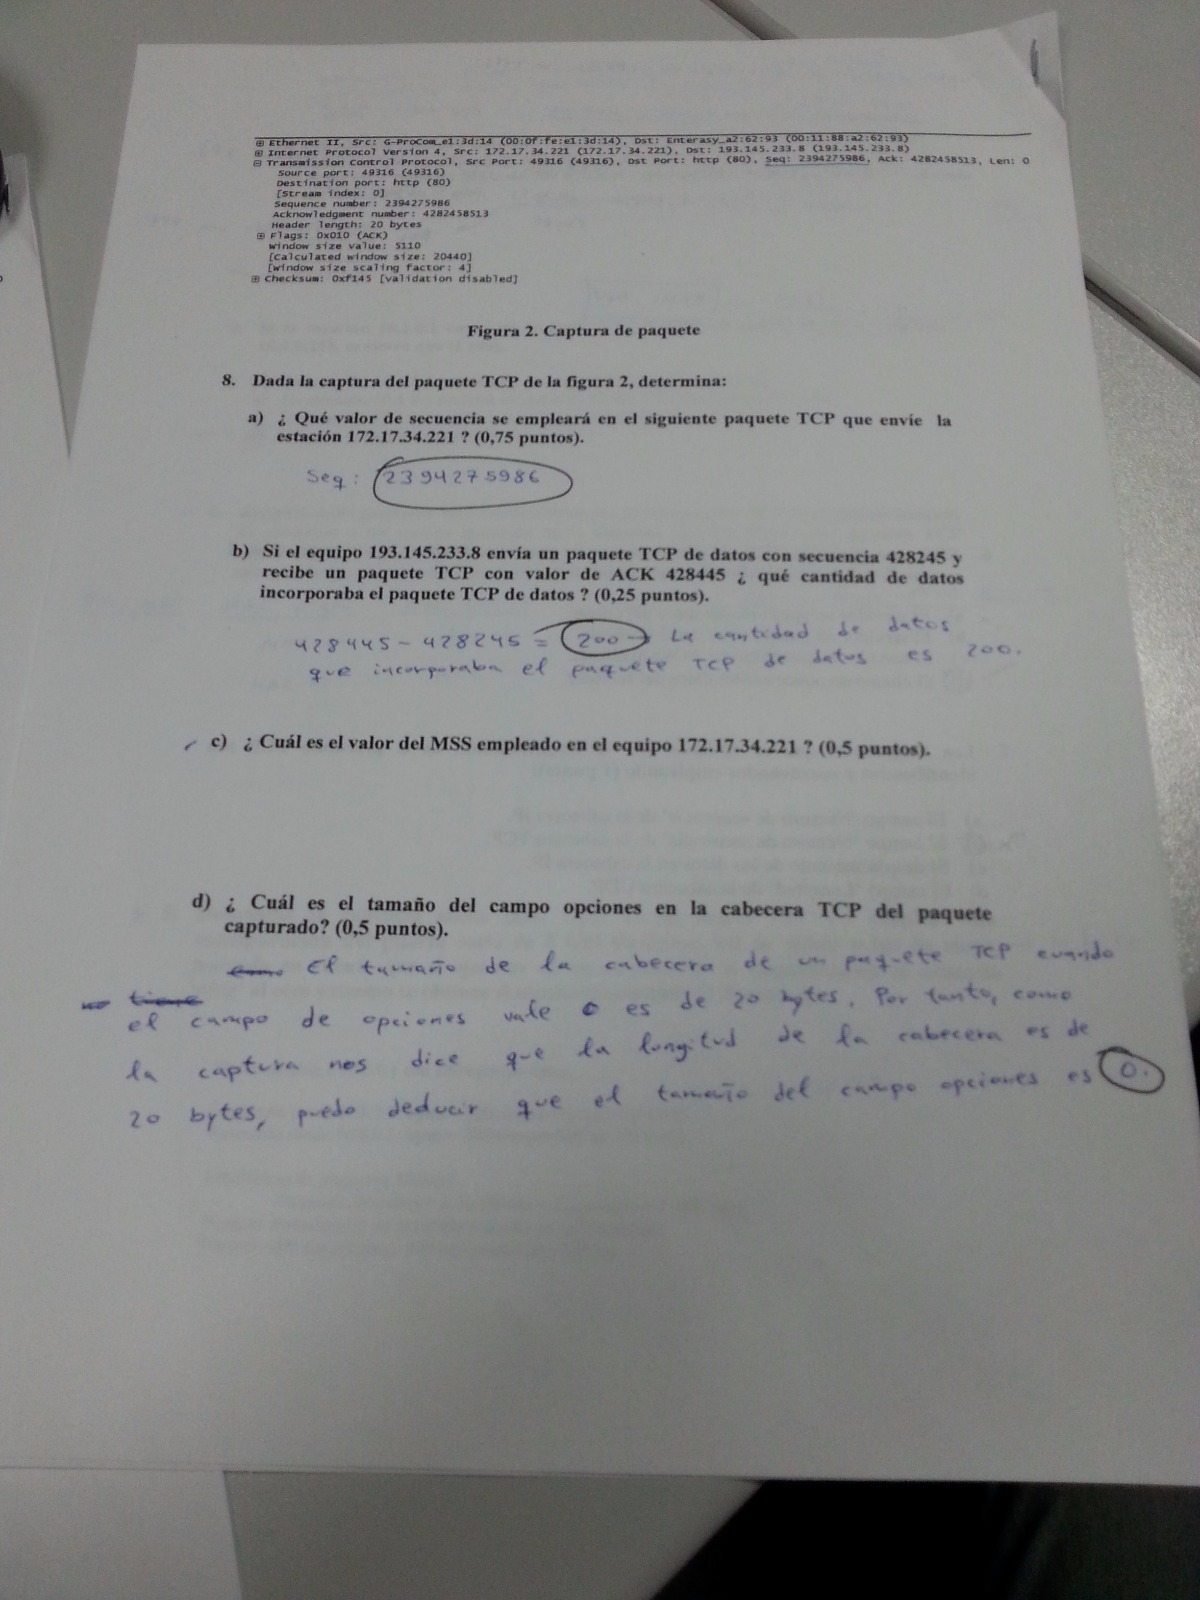 Ethernet II, Src: G-ProCom_e1:3d:14 (00:0f:fe:e1:3d:14), Dst: Enterasy_a2:62:93 (00:11:88:a2:62:93)
Internet Protocol Version 4, Src: 172.17.34.221 (172.17.34.221), Dst: 193.145.233.8 (193.145.233.8)
Transmission Control Protocol, Src Port: 49316 (49316), Dst Port: http (80), Seq: 2394275986, Ack: 4282458513, Len: 0
Source port: 49316 (49316)
Destination port: http (80)
[Stream index: 0]
Sequence number: 2394275986
Acknowledgment number: 4282458513
Header length: 20 bytes
Flags: 0x010 (ACK)
Window size value: 5110
[Calculated window size: 20440]
[Window size scaling factor: 4]
Checksum: 0xf145 [validation disabled]
Figura 2. Captura de paquete
8. Dada la captura del paquete TCP de la figura 2, determina:
a) ¿ Qué valor de secuencia se empleará en el siguiente paquete TCP que envíe la
estación 172.17.34.221 ? (0,75 puntos).
Seq: 2394275986
b) Si el equipo 193.145.233.8 envía un paquete TCP de datos con secuencia 428245 y
recibe un paquete TCP con valor de ACK 428445 ¿ qué cantidad de datos
incorporaba el paquete TCP de datos ? (0,25 puntos).
428445 - 428245 = 200 → La cantidad de datos
que incorporaba el paquete TCP de datos es 200.
c) ¿ Cuál es el valor del MSS empleado en el equipo 172.17.34.221 ? (0,5 puntos).
d) ¿ Cuál es el tamaño del campo opciones en la cabecera TCP del paquete
capturado? (0,5 puntos).
El tamaño de la cabecera de un paquete TCP cuando
no tiene
el campo de opciones vale 0 es de 20 bytes. Por tanto, como
la captura nos dice que la longitud de la cabecera es de
20 bytes, puedo deducir que el tamaño del campo opciones es 0.